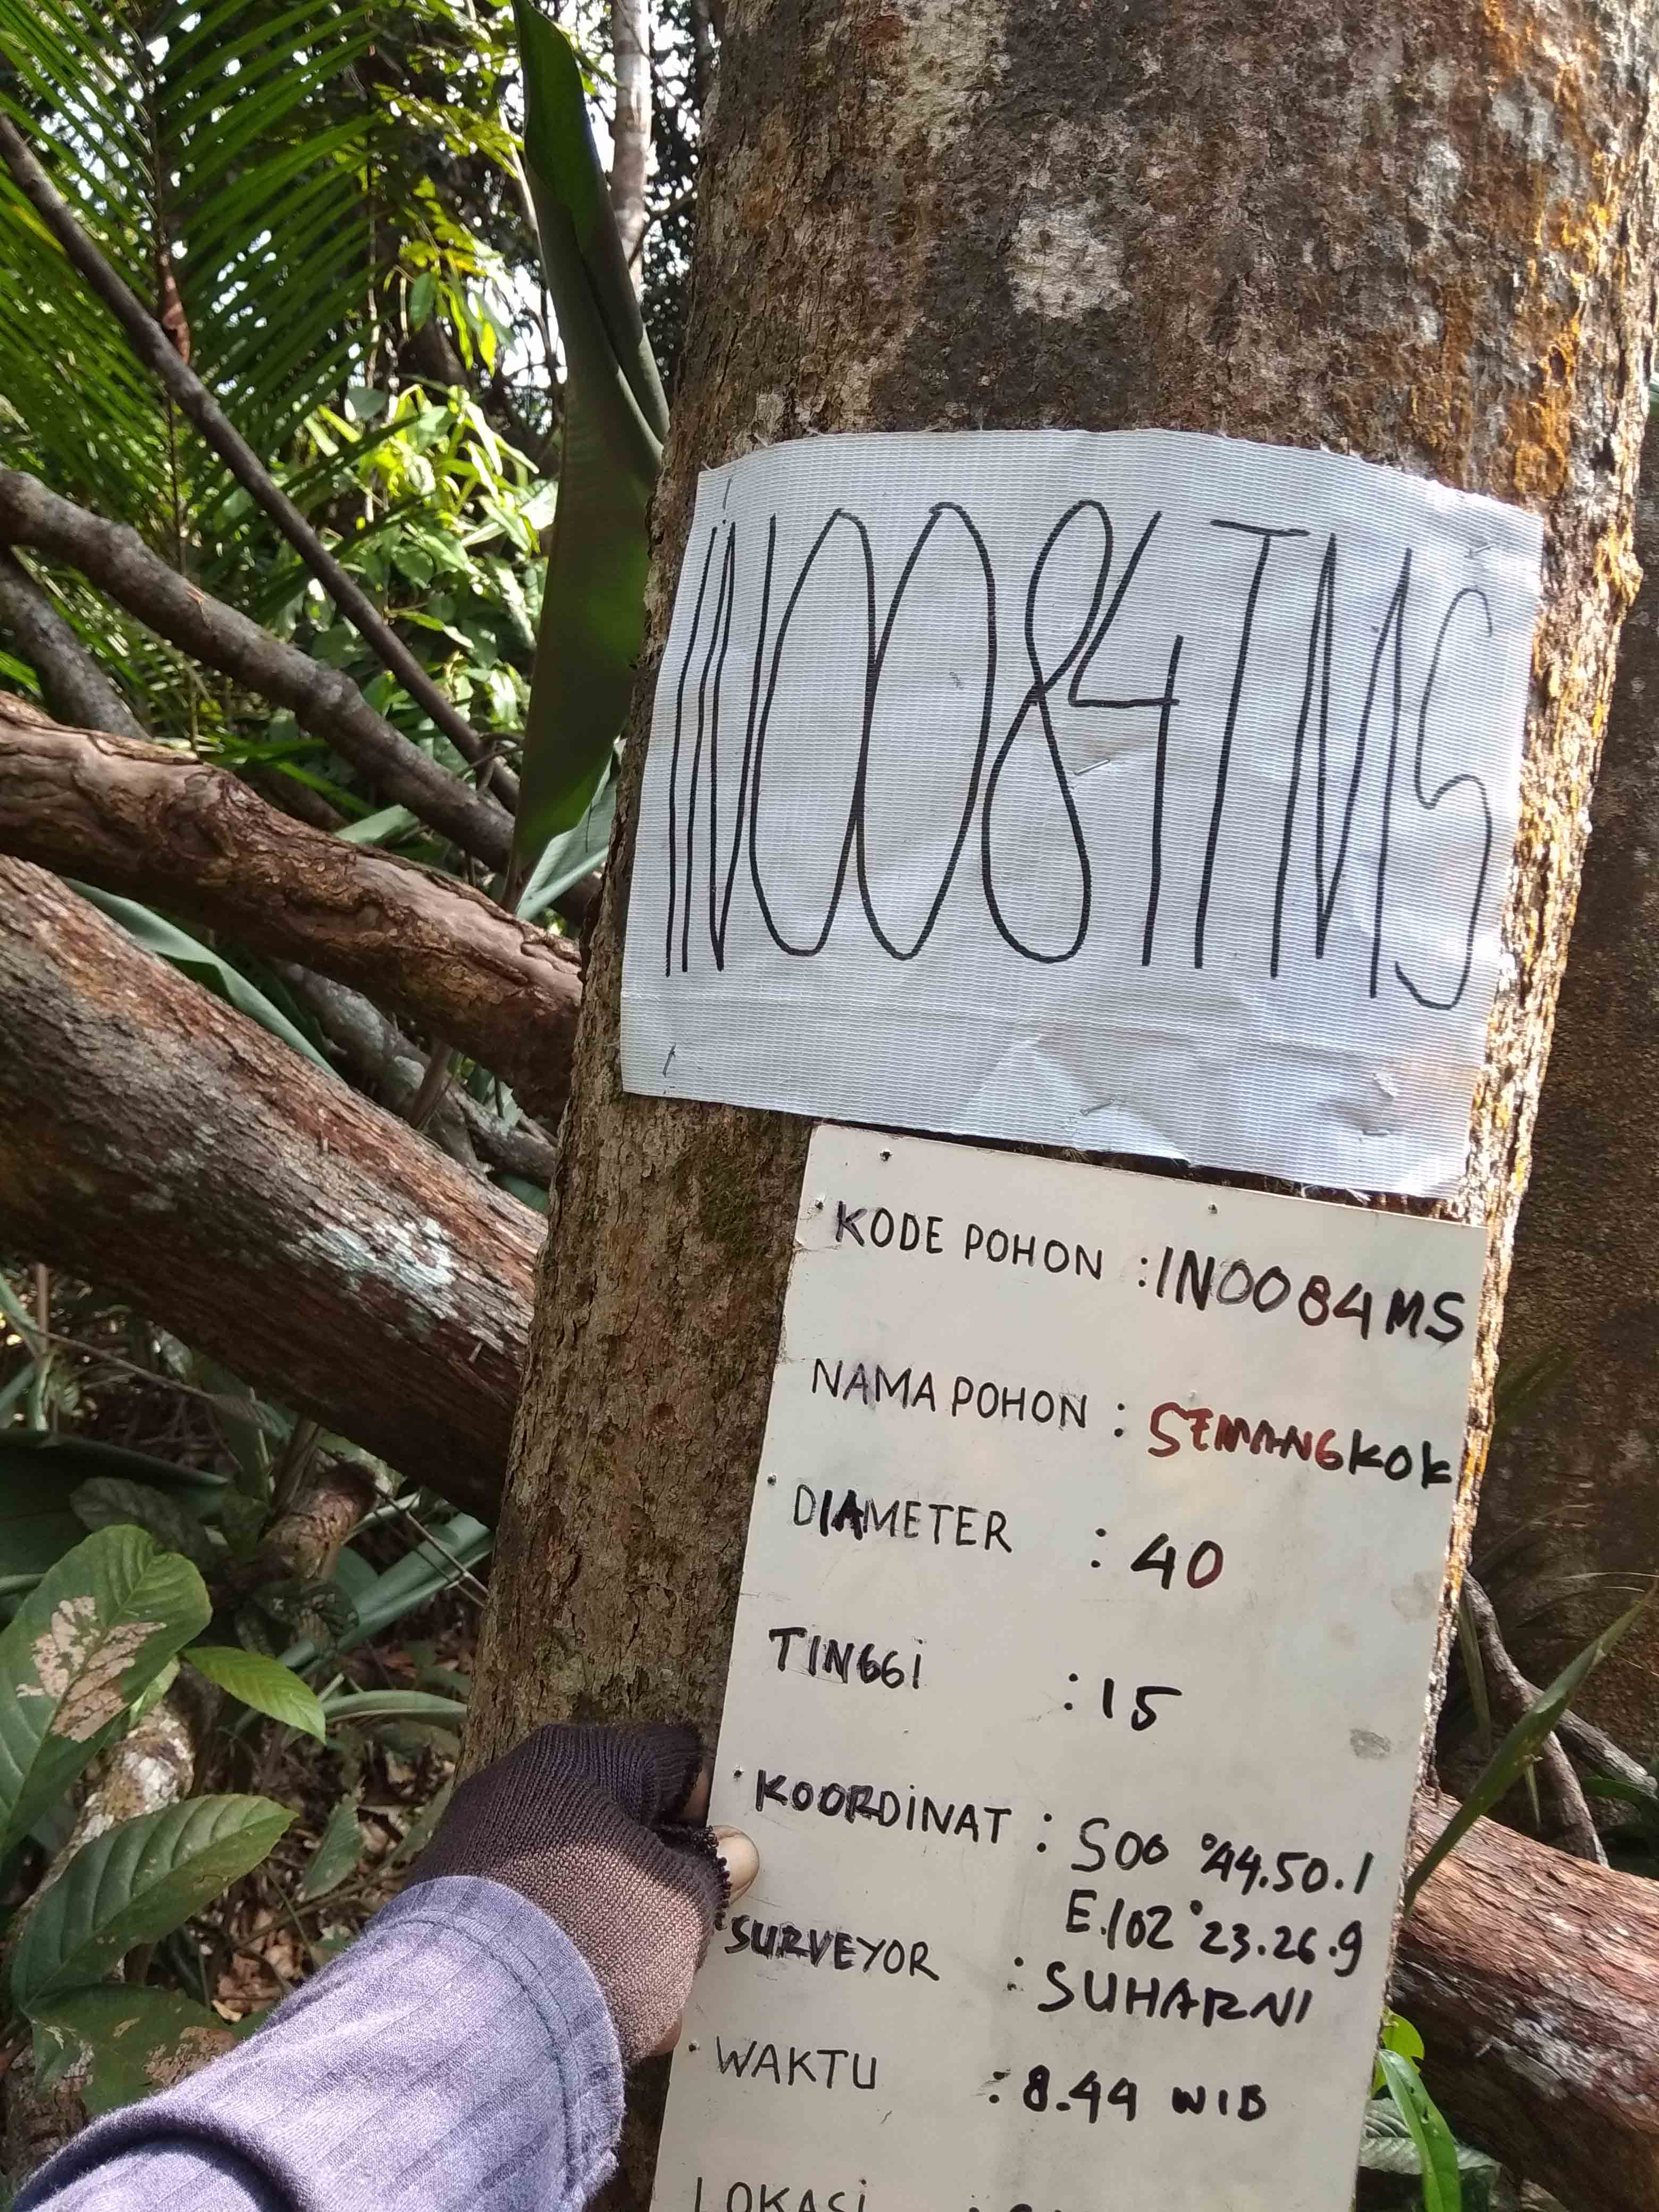 IN0084TMS
KODE POHON : IN0084MS
NAMA POHON : SEMANGKOK
DIAMETER : 40
TINGGi : 15
KOORDiNAT : S00°44.50.1
E.102°23.26.9
SURVEYOR : SUHARNI
WAKTU : 8.44 WIB
LOKASi :